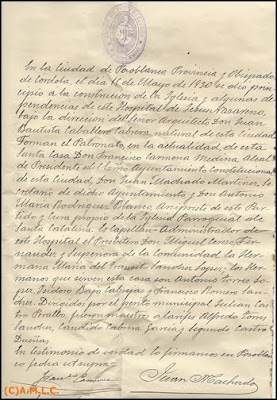 En la Ciudad de Pozoblanco Provincia y Obispado
de Cordoba, el dia 16 de Mayo de 1930 se dió prin-
cipio a la construcion de la Iglesia y algunas de-
pendencias de este Hospital de Jesus Nazareno,
bajo la direccion del Señor Arquitecto Don Juan
Bautista Caballero Cabrera natural de esta ciudad
Forman el Patronato, en la actualidad de esta
Santa Casa Don Francisco Carmona Medina Alcal-
de Presidente del Ilmo Ayuntamiento Constitucional
de esta Ciudad, Don Juan Machado Martinez, Se-
cretario de dicho Ayuntamiento y Don Antonio
Maria Rodriguez Blanco, Arcipreste de este Par-
tido y Cura propio de la Iglesia Parroquial de
Santa Catalina. Es Capellan-Administrador de
este Hospital el Presbitero Don Miguel Fer-
nandez y Superiora de la Comunidad la Her-
mana Maria del Sanchez Lopez; los Her-
manos que sirven esta casa son Antonio Torres Lo-
pez, Isidoro Bajo Francisco Roman San-
chez. Dirigidos por el perito municipal Julian Cas-
tro Peralbo, fueron maestros alarifes Alfredo Torres
Sanchez, Candido Cabrera Garcia y Segundo Castro
Dueñas.
En testimonio de verdad lo firmamos en Pozoblan-
co fecha ut supra.
Juan Machado
(C)A.M.L.C.